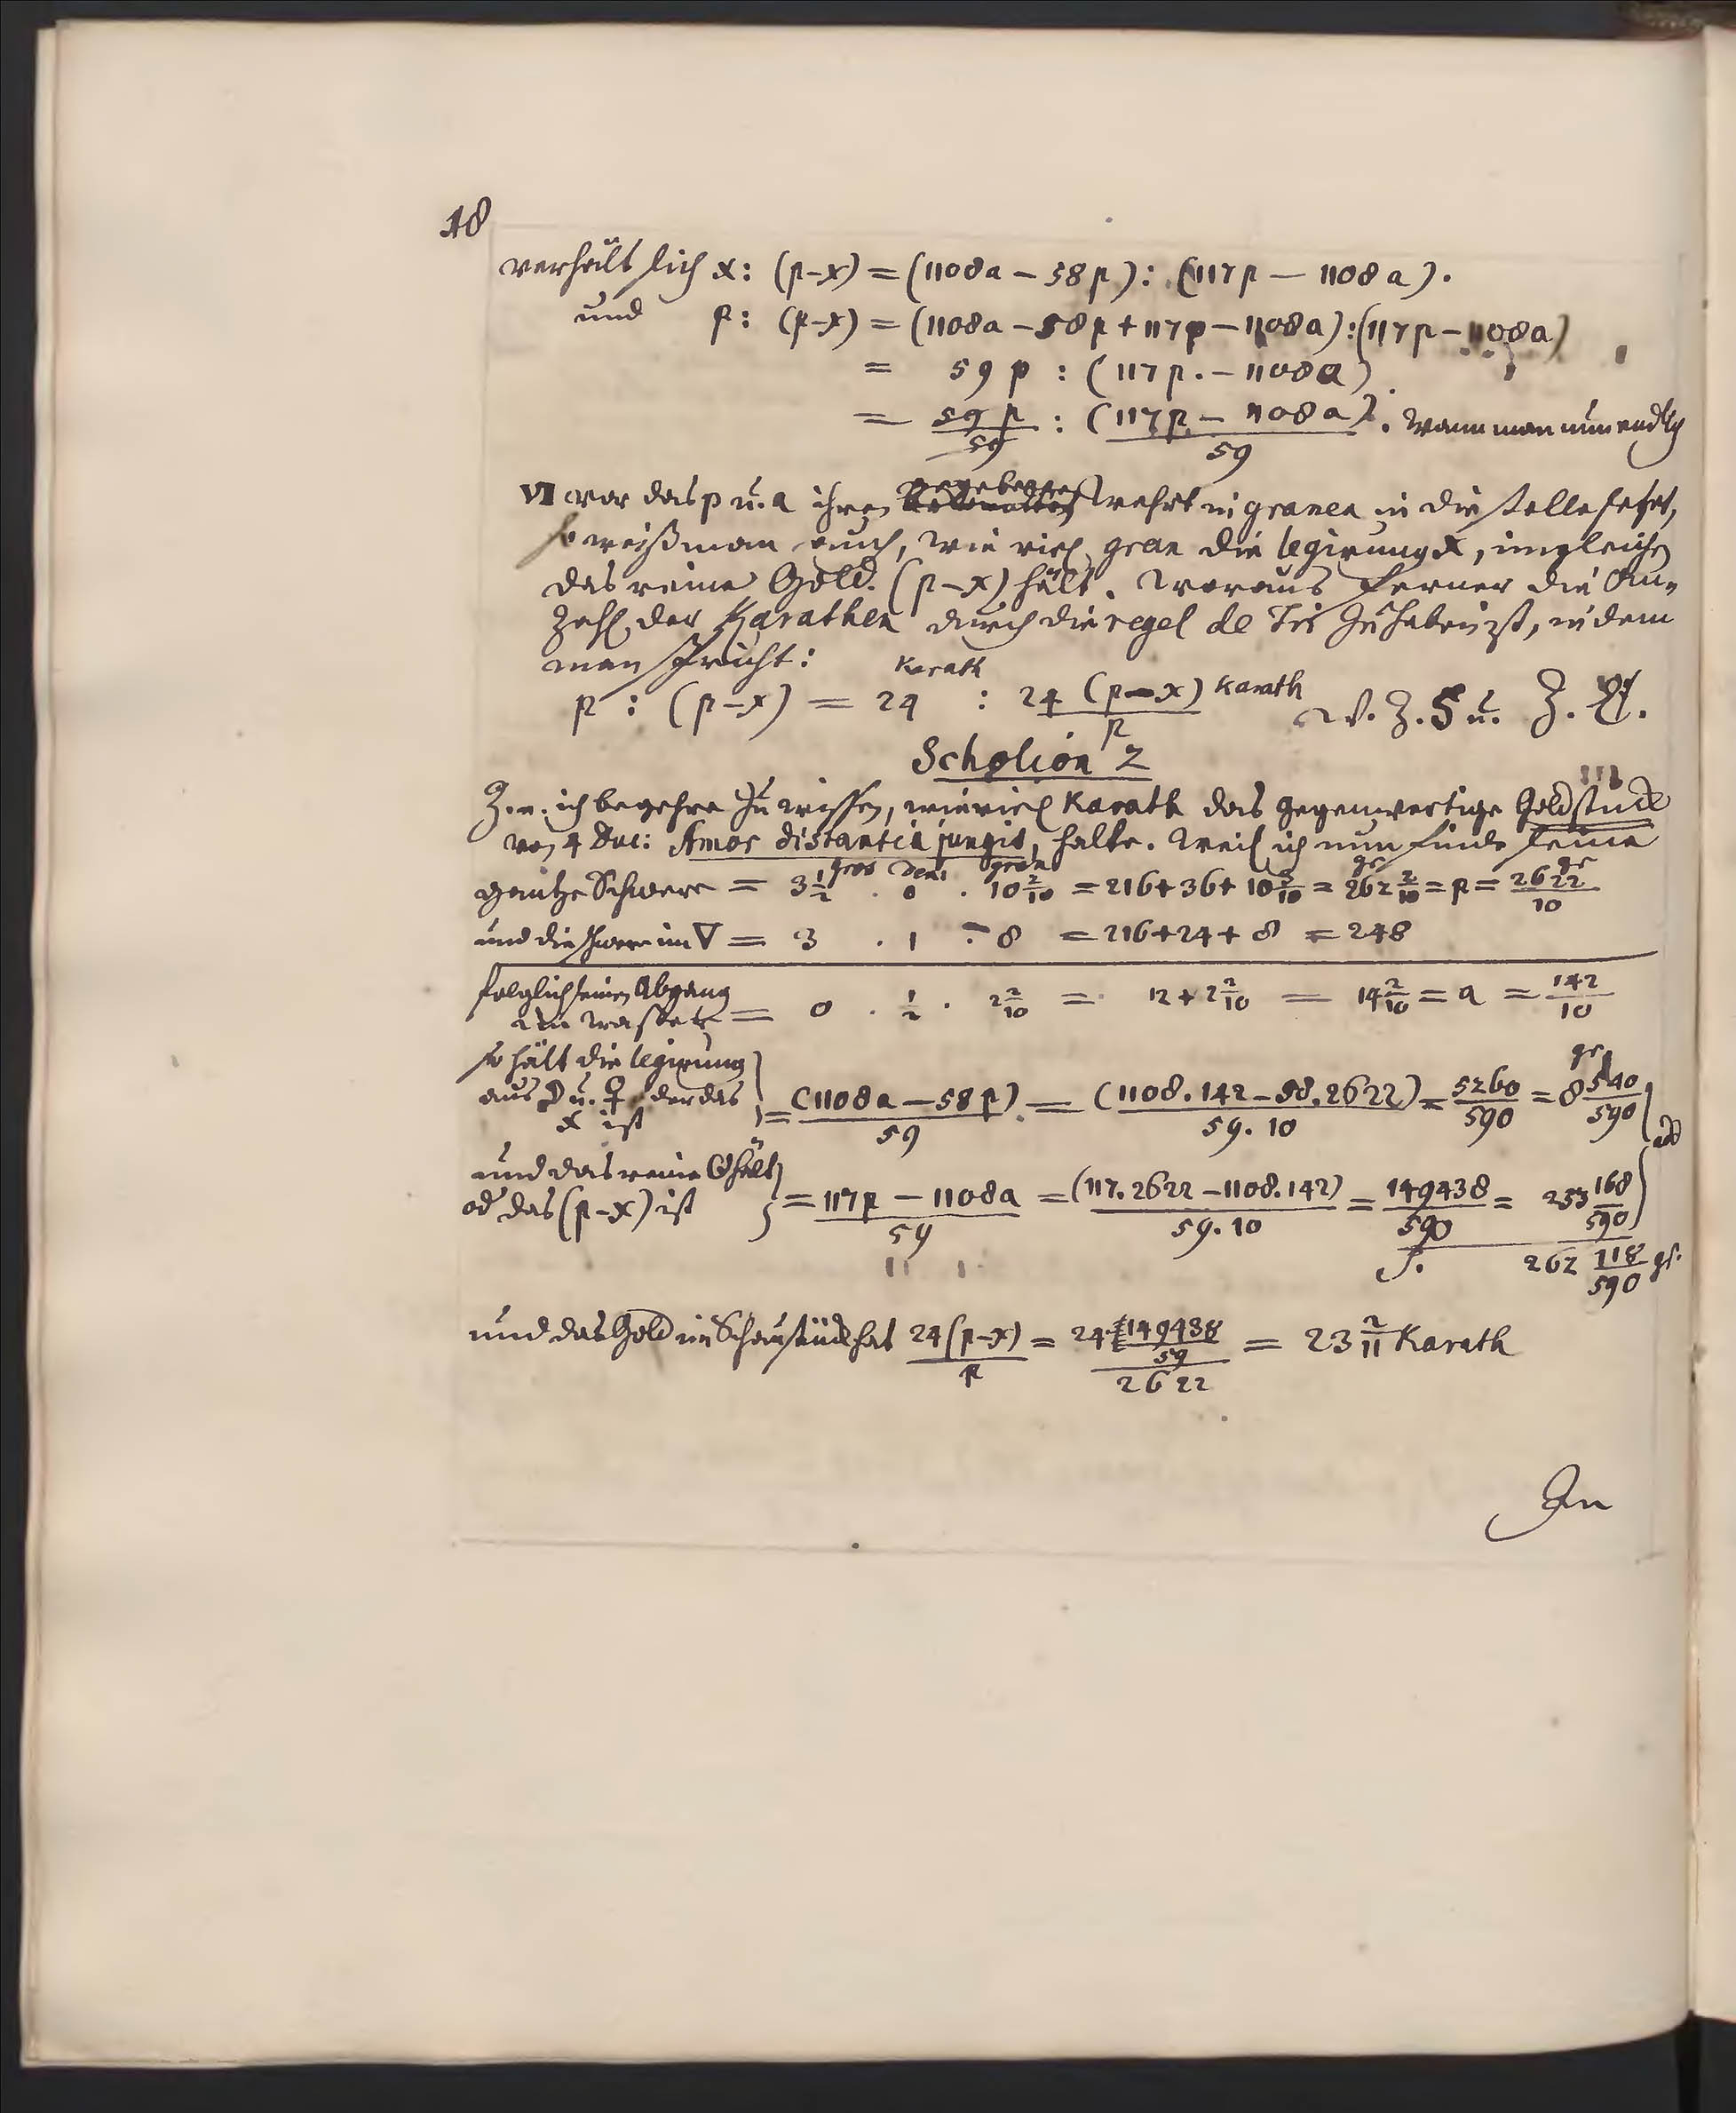 18
verhält sich x: (p-x) = (1108a - 58p): (117p - 1108a).
und p: (p-x) = (1108a - 58p + 117p - 1108a):(117p - 1108a)
= 59p : (117p. - 1108a)
= 59p/59 : (117p - 1108a)/59. Wann man nun endlich
VI vor das p u. a ihren gegebenen wehrt in granen in die stelle setzt,
so weiß man auch, wie viel gran die legirung x, imgleichen
das reine Gold (p-x) hält. Woraus ferner die An-
zahl der Karathen durch die regel de Tri zu haben ist, indem
man spricht:
p : (p-x) = 24 Karath : 24 (p-x)/p Karath W. Z. F. u. Z. E.
Scholion 2
Z. e. ich begehre zu wissen, wieviel Karath das gegenwertige Goldstück
von 4 Duc: Amos distantia jungit, halte. Weil ich nun finde seine
gantze Schwere = 3 1/2 gros . 0 den: . 10 2/10 gran = 216 + 36 + 10 2/10 = 262 2/10 gr = p = 2622/10 gr
und die schwere im ▽ = 3 . 1 . 8 = 216 + 24 + 8 = 248
folglich seinen Abgang
im wasser = 0 . 1/2 . 2 2/10 = 12 + 2 2/10 = 14 2/10 = a = 142/10
so hält die legirung
aus ☽ u. ♀ oder das
x ist } = (1108a - 58p)/59 = (1108.142 - 58.2622)/59.10 = 5260/590 = 8 540/590 gr } add
und das reine ☉ hält
od das (p-x) ist } = 117p - 1108a/59 = (117.2622 - 1108.142)/59.10 = 149438/590 = 253 168/590
S. 262 118/590 gr.
und das Gold im Schaustück hat 24(p-x)/p = 24.149438/59/2622 = 23 2/11 Karath
In